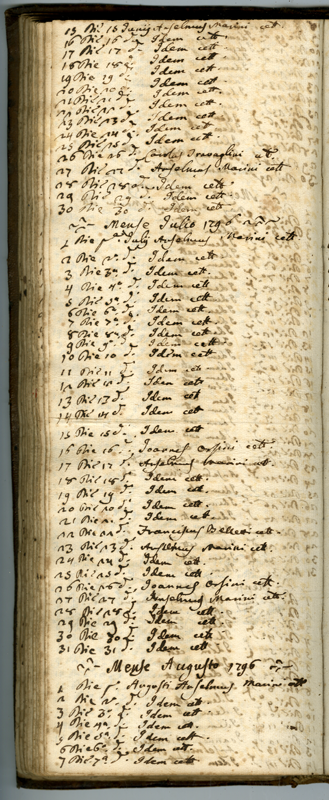 15 Die 15 Junij Anselmus Marini cett.
16 Die 16 d.º Idem cett
17 Die 17 d.º Idem cett
18 Die 18 d.º Idem cett
19 Die 19 d.º Idem cett
20 Die 20 d.º Idem cett
21 Die 21 d.º Idem cett
22 Die 22 d.º Idem cett
23 Die 23 d.º Idem cett
24 Die 24 d.º Idem cett
25 Die 25 d.º Idem cett
26 Die 26 d.º Travaglini cett.
27 Die 27 d.º Anselmus Marini cett
28 Die 28 d.º Idem cett
29 Die 29 d.º Idem cett
30 Die 30 d.º Idem cett
Mense Julio 1796
1 Die pª Julij Anselmus Marini cett
2 Die 2ª d.º Idem cett
3 Die 3ª d.º Idem cett
4 Die 4ª d.º Idem cett
5 Die 5ª d.º Idem cett
6 Die 6ª d.º Idem cett
7 Die 7ª d.º Idem cett
8 Die 8ª d.º Idem cett
9 Die 9ª d.º Idem cett
10 Die 10 d.º Idem cett
11 Die 11 d.º Idem cett
12 Die 12 d.º Idem cett
13 Die 13 d.º Idem cett
14 Die 14 d.º Idem cett
15 Die 15 d.º Idem cett
16 Die 16 d.º Joannes Orsini cett
17 Die 17 d.º Anselmus Marini cett.
18 Die 18 d.º Idem cett.
19 Die 19 d.º Idem cett.
20 Die 20 d.º Idem cett
21 Die 21 d.º Idem cett
22 Die 22 d.º Franciscus cett.
23 Die 23 d.º Anselmus Marini cett.
24 Die 24 d.º Idem cett.
25 Die 25 d.º Idem cett
26 Die 26 d.º Joannes Orsini cett.
27 Die 27 d.º Anselmus Marini cett.
28 Die 28 d.º Idem cett
29 Die 29 d.º Idem cett
30 Die 30 d.º Idem cett
31 Die 31 d.º Idem cett
Mense Augusto 1796
1 Die pª Augusti Anselmus Marini cett
2 Die 2ª d.º Idem cett
3 Die 3ª d.º Idem cett
4 Die 4ª d.º Idem cett
5 Die 5ª d.º Idem cett
6 Die 6ª d.º Idem cett.
7 Die 7ª d.º Idem cett